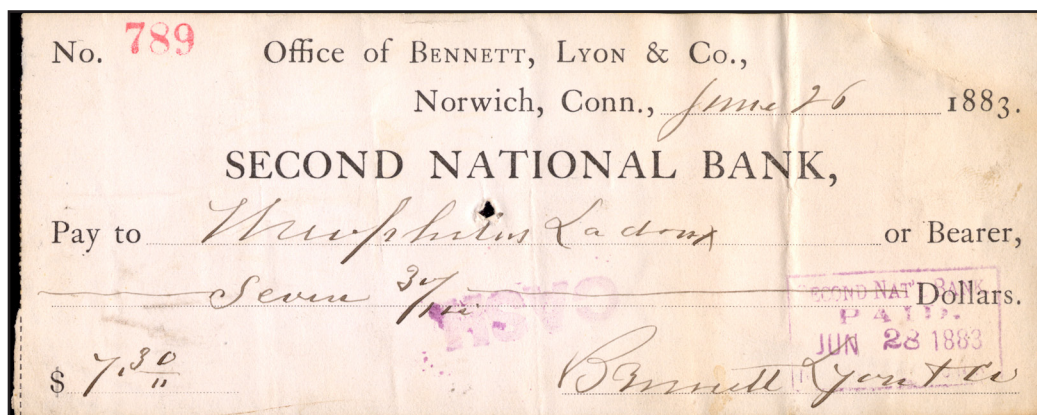 No. 789 Office of BENNETT, LYON & Co.,
Norwich, Conn., June 26 1883.
SECOND NATIONAL BANK,
Pay to Theophilus Ladoux or Bearer,
Seven 30/100 Dollars.
CASH
SECOND NAT'L BANK
PAID.
JUN 28 1883
$ 7.30 Bennett Lyon & Co